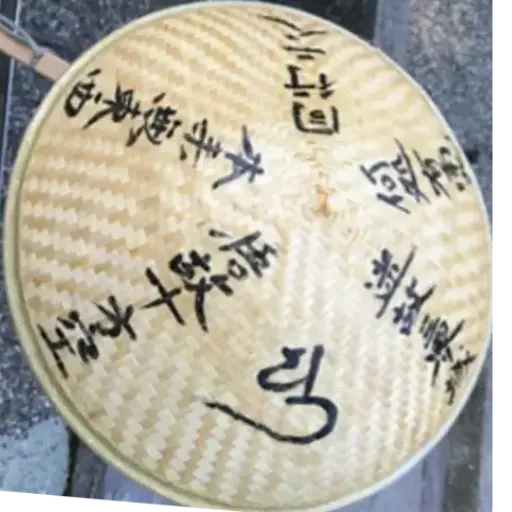 迷故三界城
悟故十方空
本来無東西
何処有南
同行二人